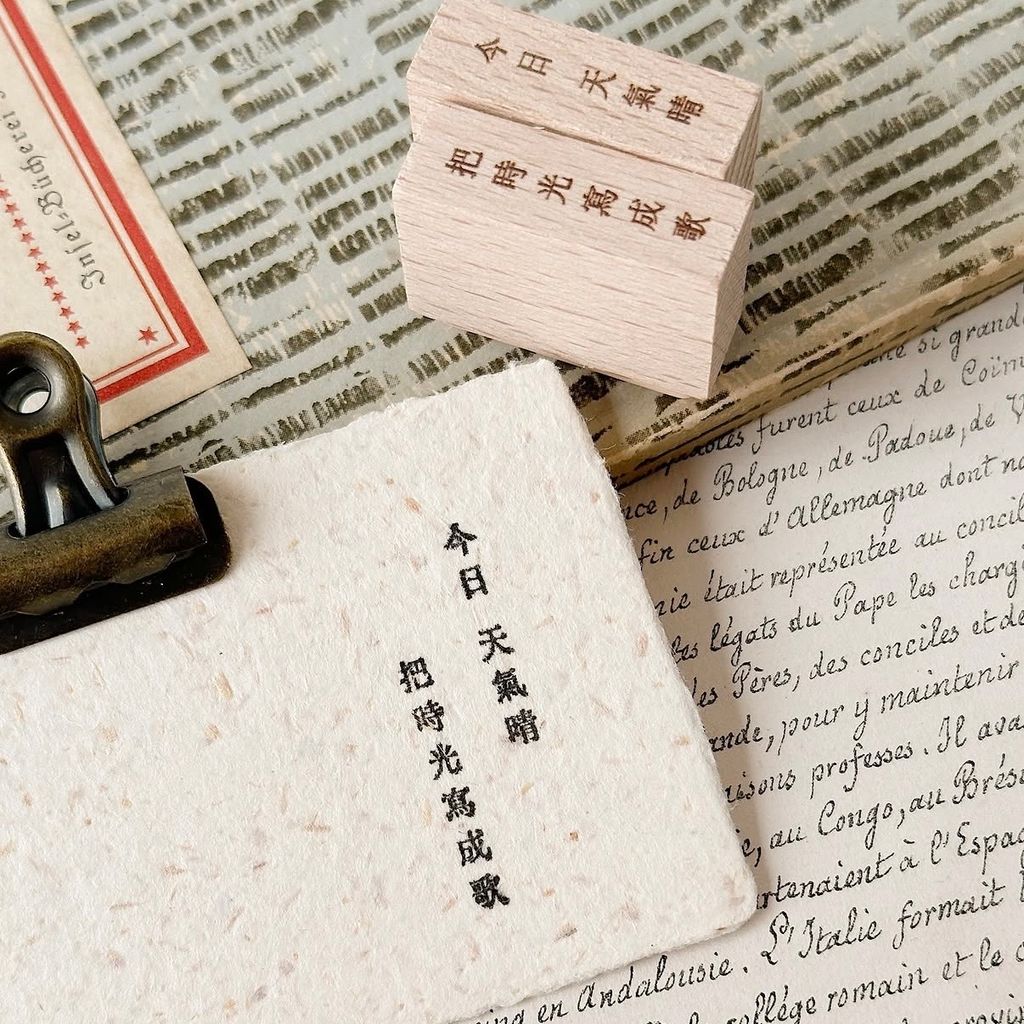 今日 天氣晴
把時光寫成歌
Insel-Bücherei
今日 天氣晴
把時光寫成歌
si grand
furent ceux de
de Bologne, de Padoue, de
fin ceux d'Allemagne dont
était représentée au
légats du Pape les
Pères, des conciles et de
pour y maintenir
professes. Il
au Congo, au
à l'
L'Italie formait
en Andalousie.
romain et le